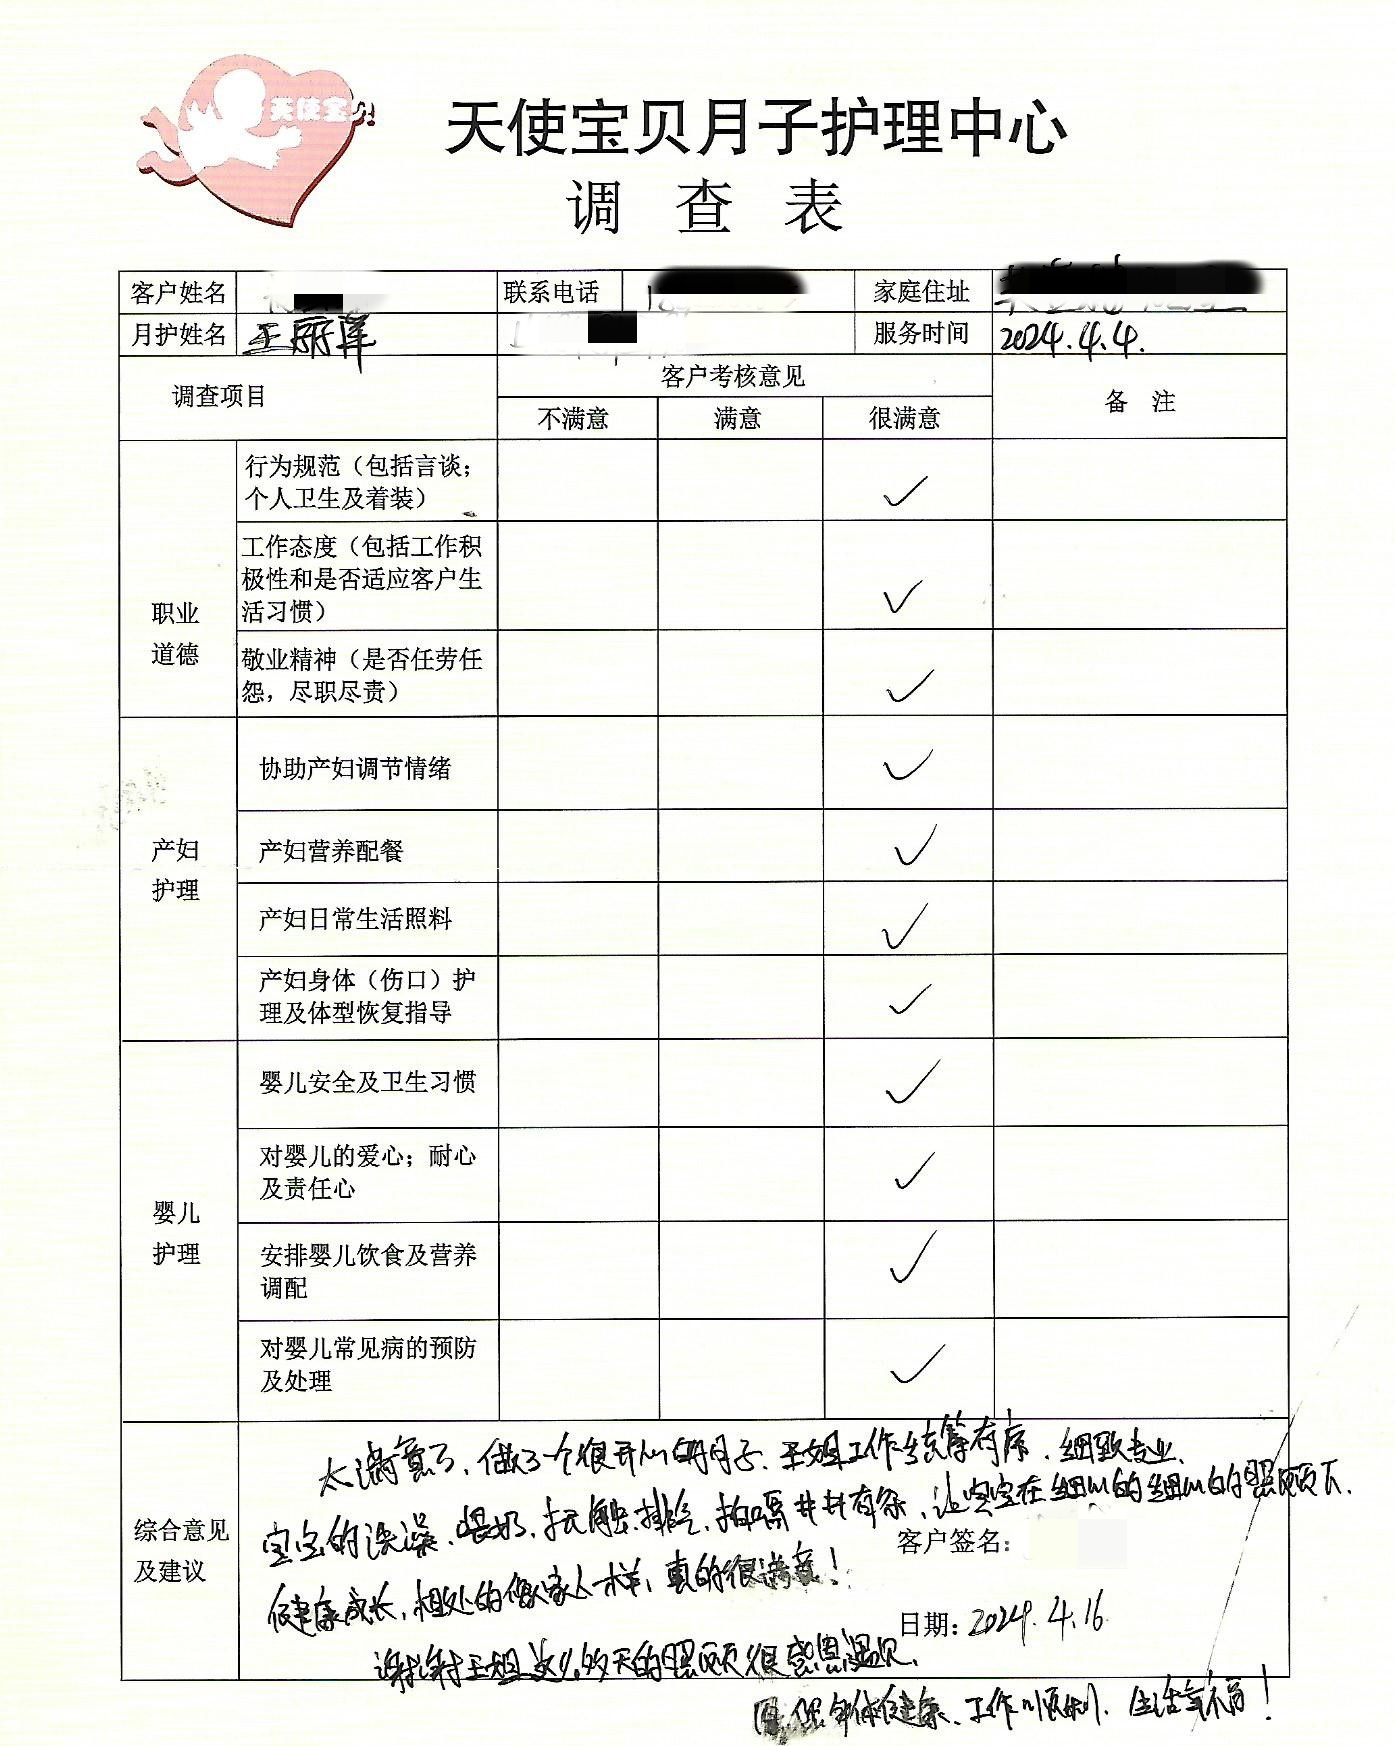 天使宝贝
天使宝贝月子护理中心
调 查 表
客户姓名 联系电话 家庭住址
月护姓名 王丽萍 服务时间 2024.4.4.
调查项目 客户考核意见 备 注
不满意 满意 很满意
职业
道德
行为规范（包括言谈；
个人卫生及着装） ✓
工作态度（包括工作积
极性和是否适应客户生
活习惯） ✓
敬业精神（是否任劳任
怨，尽职尽责） ✓
产妇
护理
协助产妇调节情绪 ✓
产妇营养配餐 ✓
产妇日常生活照料 ✓
产妇身体（伤口）护
理及体型恢复指导 ✓
婴儿
护理
婴儿安全及卫生习惯 ✓
对婴儿的爱心；耐心
及责任心 ✓
安排婴儿饮食及营养
调配 ✓
对婴儿常见病的预防
及处理 ✓
综合意见
及建议
太满意了，做了一个很开心的月子、王姐工作统筹有序、细致专业、
宝宝的洗澡、喂奶、抚触、排气、拍嗝井井有条，让宝宝在细心的细心的照顾下、
健康成长，相处的像家人一样，真的很满意！
谢谢王姐这么多天的照顾很感恩遇见、
客户签名：
日期：2024.4.16
身体健康、工作顺利、生活幸福！